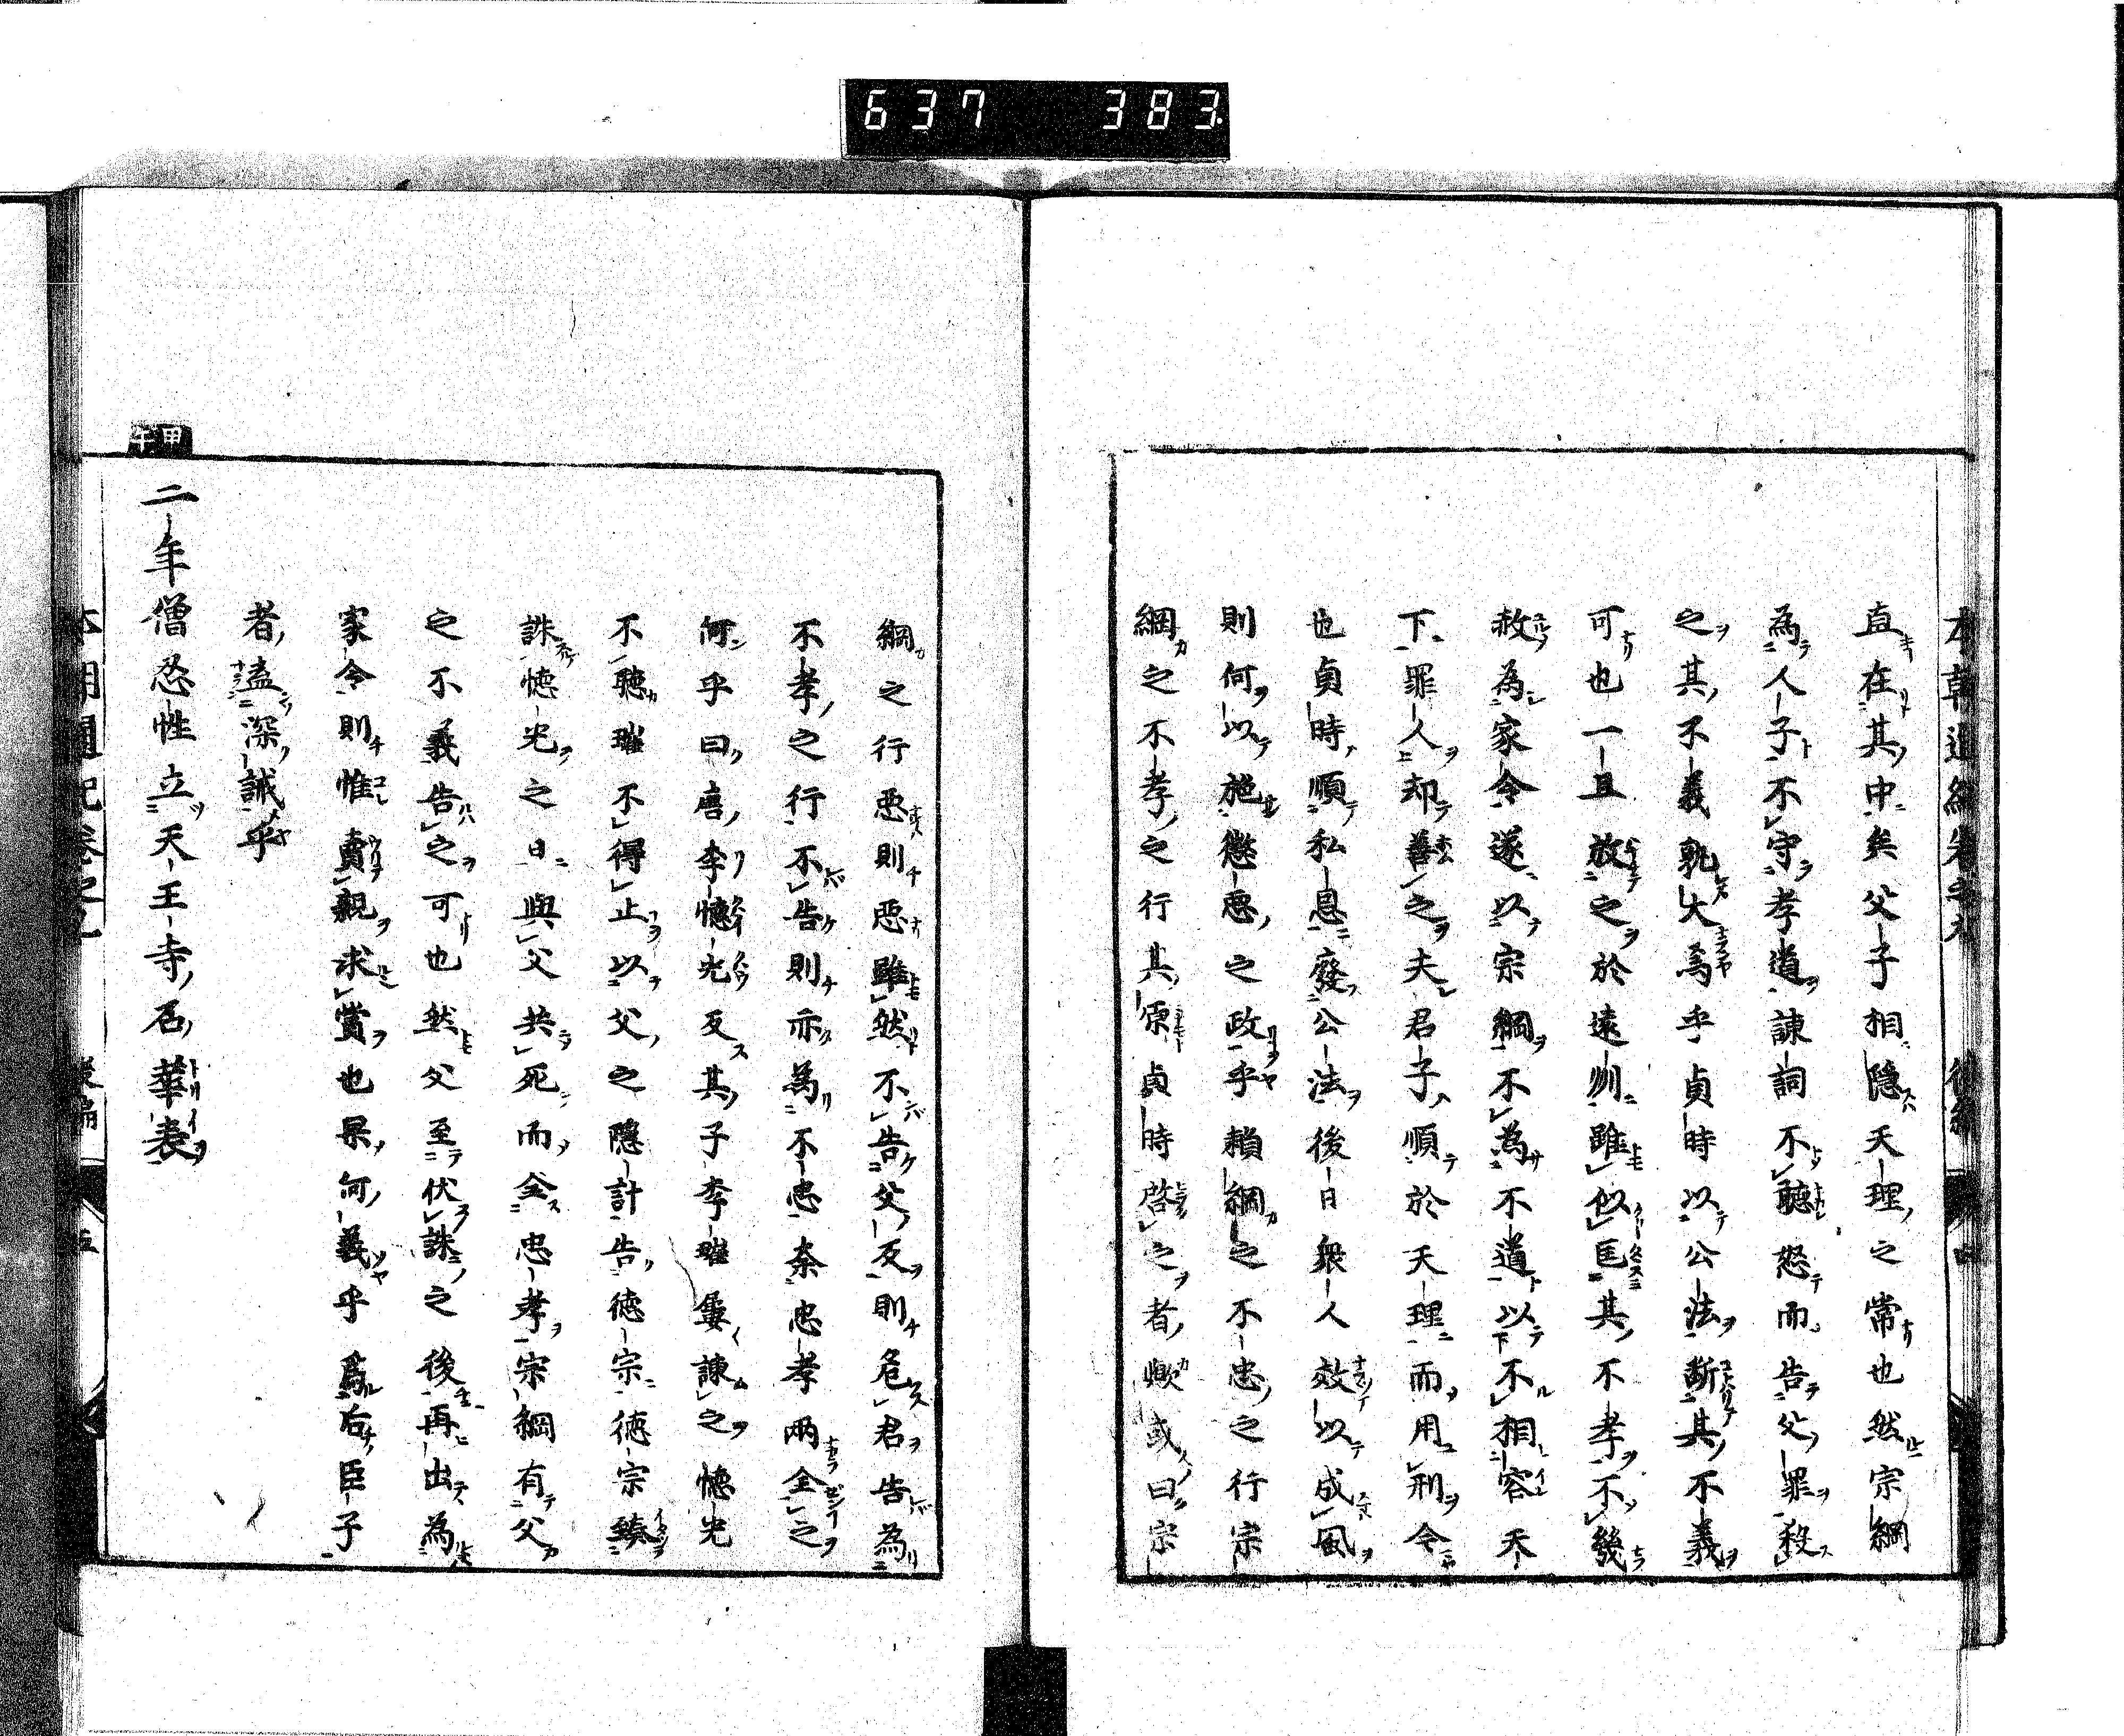 637 383
直在其中矣父子相隠天理之常也然宗綱
為人子不守孝道諌詞不聴怒而告父罪殺
之其不義孰大焉乎貞時以公法断其不義
可也一旦放之於遠州雖似匡其不孝不幾
赦為家令遂以宗綱不為不道以不相容天
下罪人却善之夫君子順於天理而用刑令
也貞時順私恩廢公法後日衆人效以成風
則何以施懲悪之政乎頼綱之不忠之行宗
綱之不孝之行其源貞時啓之者歟或曰宗
綱之行悪則悪雖然不告父反則危君告為
不孝之行不告則亦為不忠奈忠孝兩全之
何乎曰唐李懐光反其子李璀屢諌之懐光
不聴璀不得止以父之隠計告徳宗徳宗臻
誅懐光之日與父共死而全忠孝宗綱有父
之不義告之可也然父至伏誅之後再出為
家令則惟賣親求賞也果何義乎為右臣子
者盍深誡乎
甲午
二年僧忍性立天王寺石華表